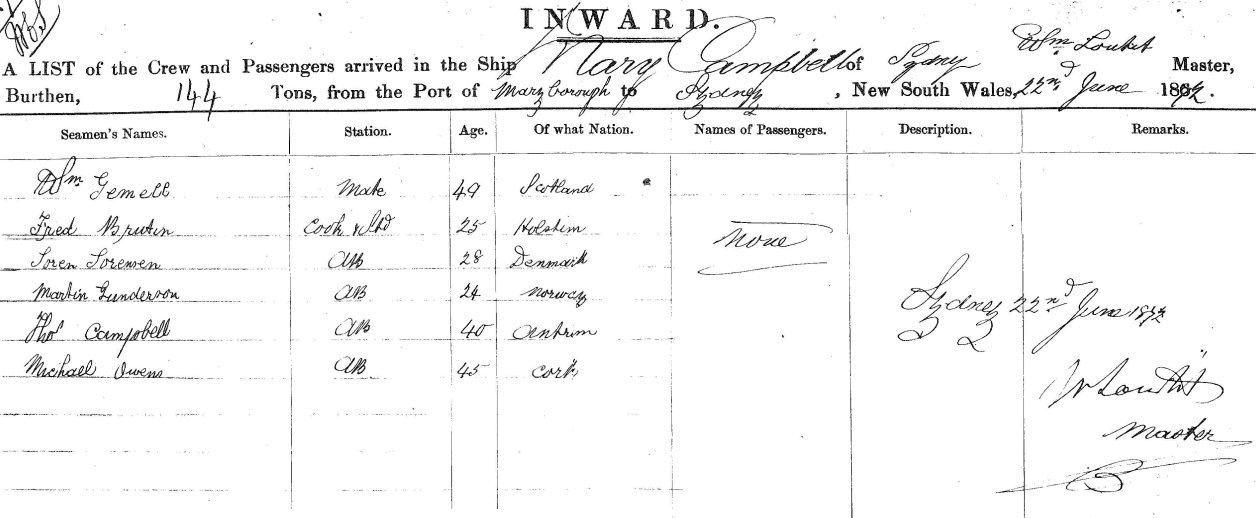 INWARD.
Wm Loutit
A LIST of the Crew and Passengers arrived in the Ship Mary Campbell of Sydney Master,
Burthen, 144 Tons, from the Port of Maryborough to Sydney, New South Wales, 22nd June 1872.
Seamen's Names. Station. Age. Of what Nation. Names of Passengers. Description. Remarks.
Wm Gemell Mate 49 Scotland
Fred Brutin Cook & Std 25 Holstim
None
Soren Sorensen AB 28 Denmark
Martin Gunderson AB 24 Norway
Sydney 22nd June 1872
Thos Campbell AB 40 Antrim
Michael Owens AB 45 Cork
W Loutit
Master